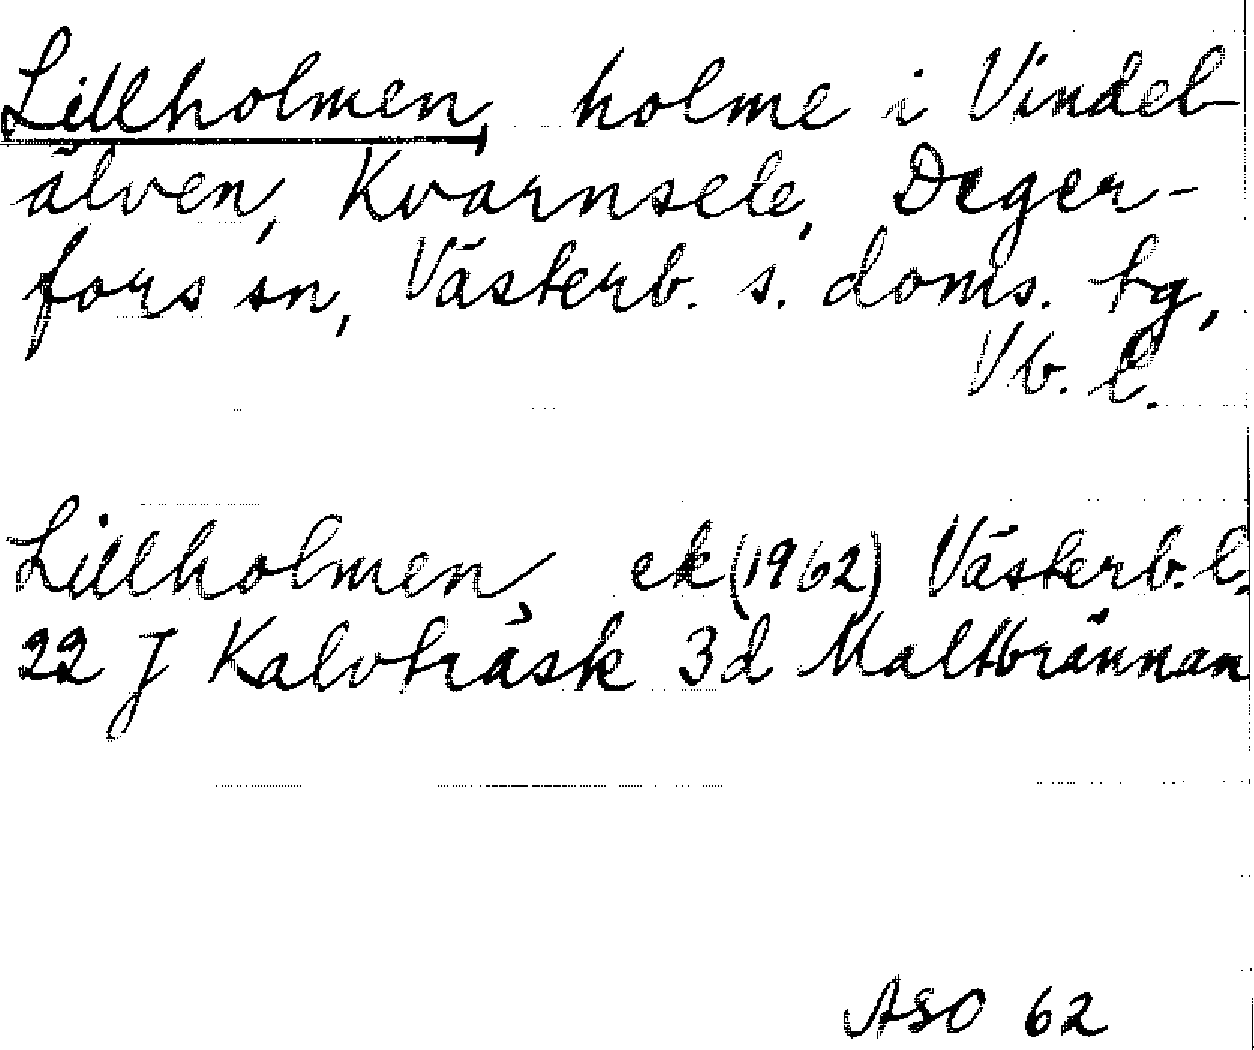 Lillholmen, holme i Vindel-
älven, Kvarnsele, Deger-
fors sn, Västerb. s. doms. tg,
Vb. l.
Lillholmen, ek (1962) Västerb. l.
22 J Kalvträsk 3d Maltbrännan
ASO 62